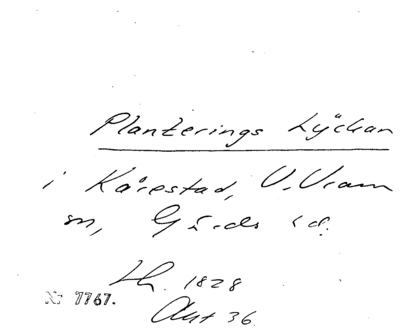 Planterings Lyckan
i Kårestad, V. Vram
sn, Gärds hd.
Lh. 1828
Akt 36.
Nr 7767.